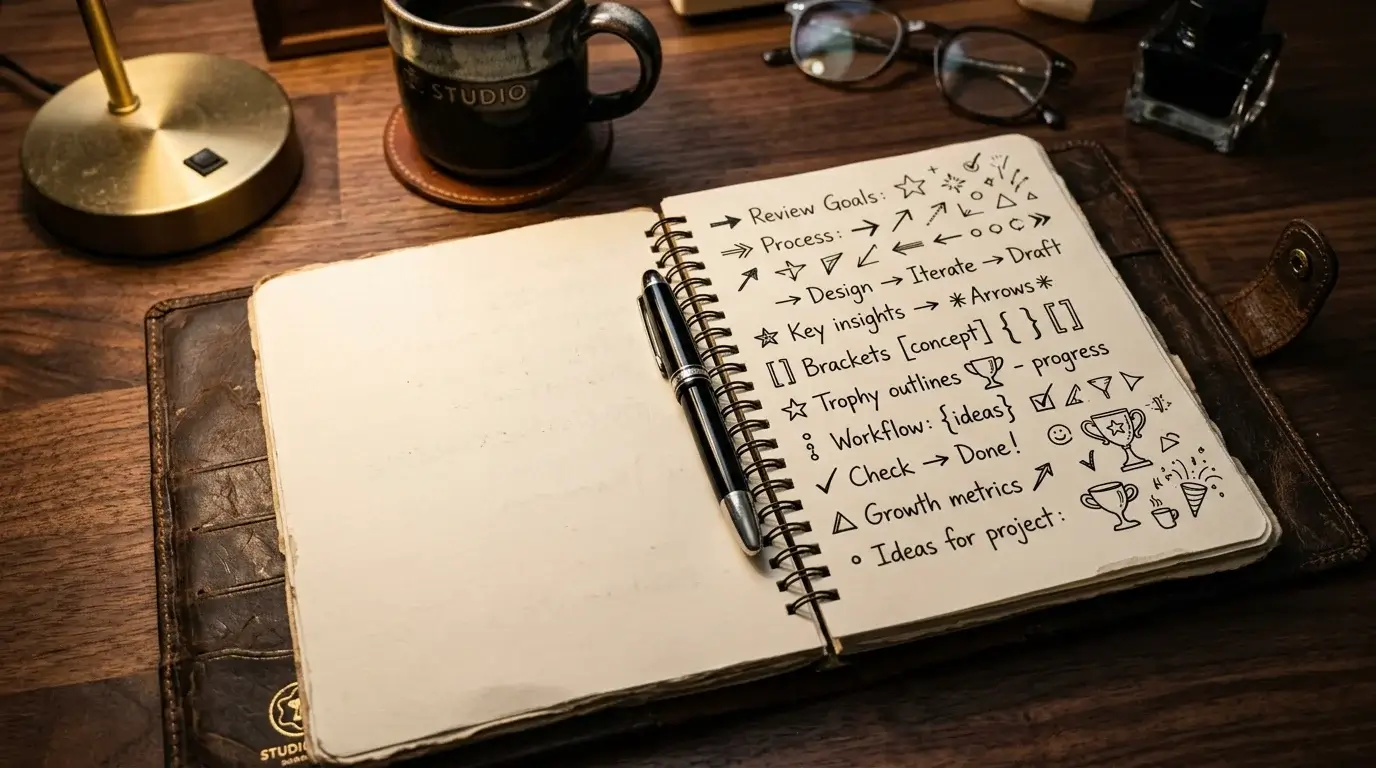 STUDIO
→ Review Goals:
⇒ Process: →
→ Design → Iterate → Draft
☆ Key insights → *Arrows*
[] Brackets [concept] { } []
☆ Trophy outlines 🏆 - progress
Workflow: {ideas}
✓ Check → Done!
△ Growth metrics ↗
∘ Ideas for project:
STUDIO